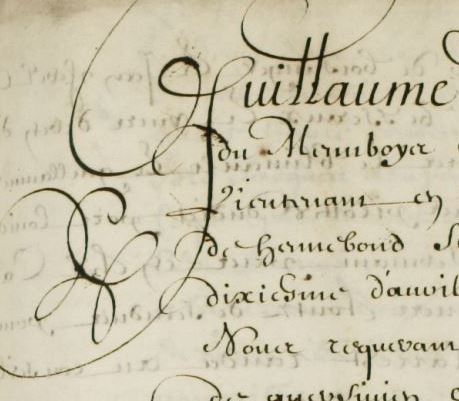 Guillaume
du Mermboyer
Lieutenant en
de Hennebond
dixiesme d'avril
Nouer requerant
de